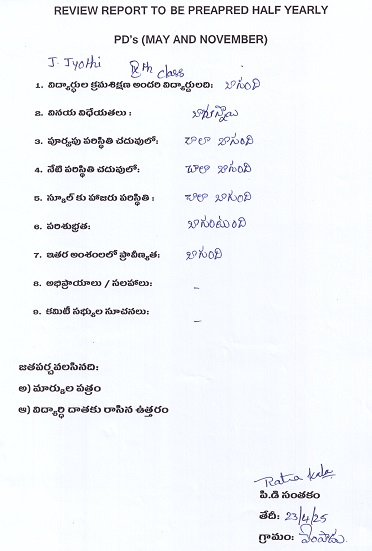 REVIEW REPORT TO BE PREAPRED HALF YEARLY
PD's (MAY AND NOVEMBER)
J. Jyothi class
1. విద్యార్థుల క్రమశిక్షణ అందరి విద్యార్థులది: బాగుంది
2. వినయ విధేయతలు : బాగున్నాయి
3. పూర్వపు పరిస్థితి చదువులో: చాలా బాగుంది
4. నేటి పరిస్థితి చదువులో: చాలా బాగుంది
5. స్కూల్ కు హాజరు పరిస్థితి : చాలా బాగుంది
6. పరిశుభ్రత: బాగుంటుంది
7. ఇతర అంశంలలో ప్రావీణ్యత: బాగుంది
8. అభిప్రాయాలు / సలహాలు: –
9. కమిటీ సభ్యుల సూచనలు: –
జతపర్చవలసినది:
అ) మార్కుల పత్రం
ఆ) విద్యార్ధి దాతకు రాసిన ఉత్తరం
పి.డి సంతకం
తేదీ: 23/4/25
గ్రామం: